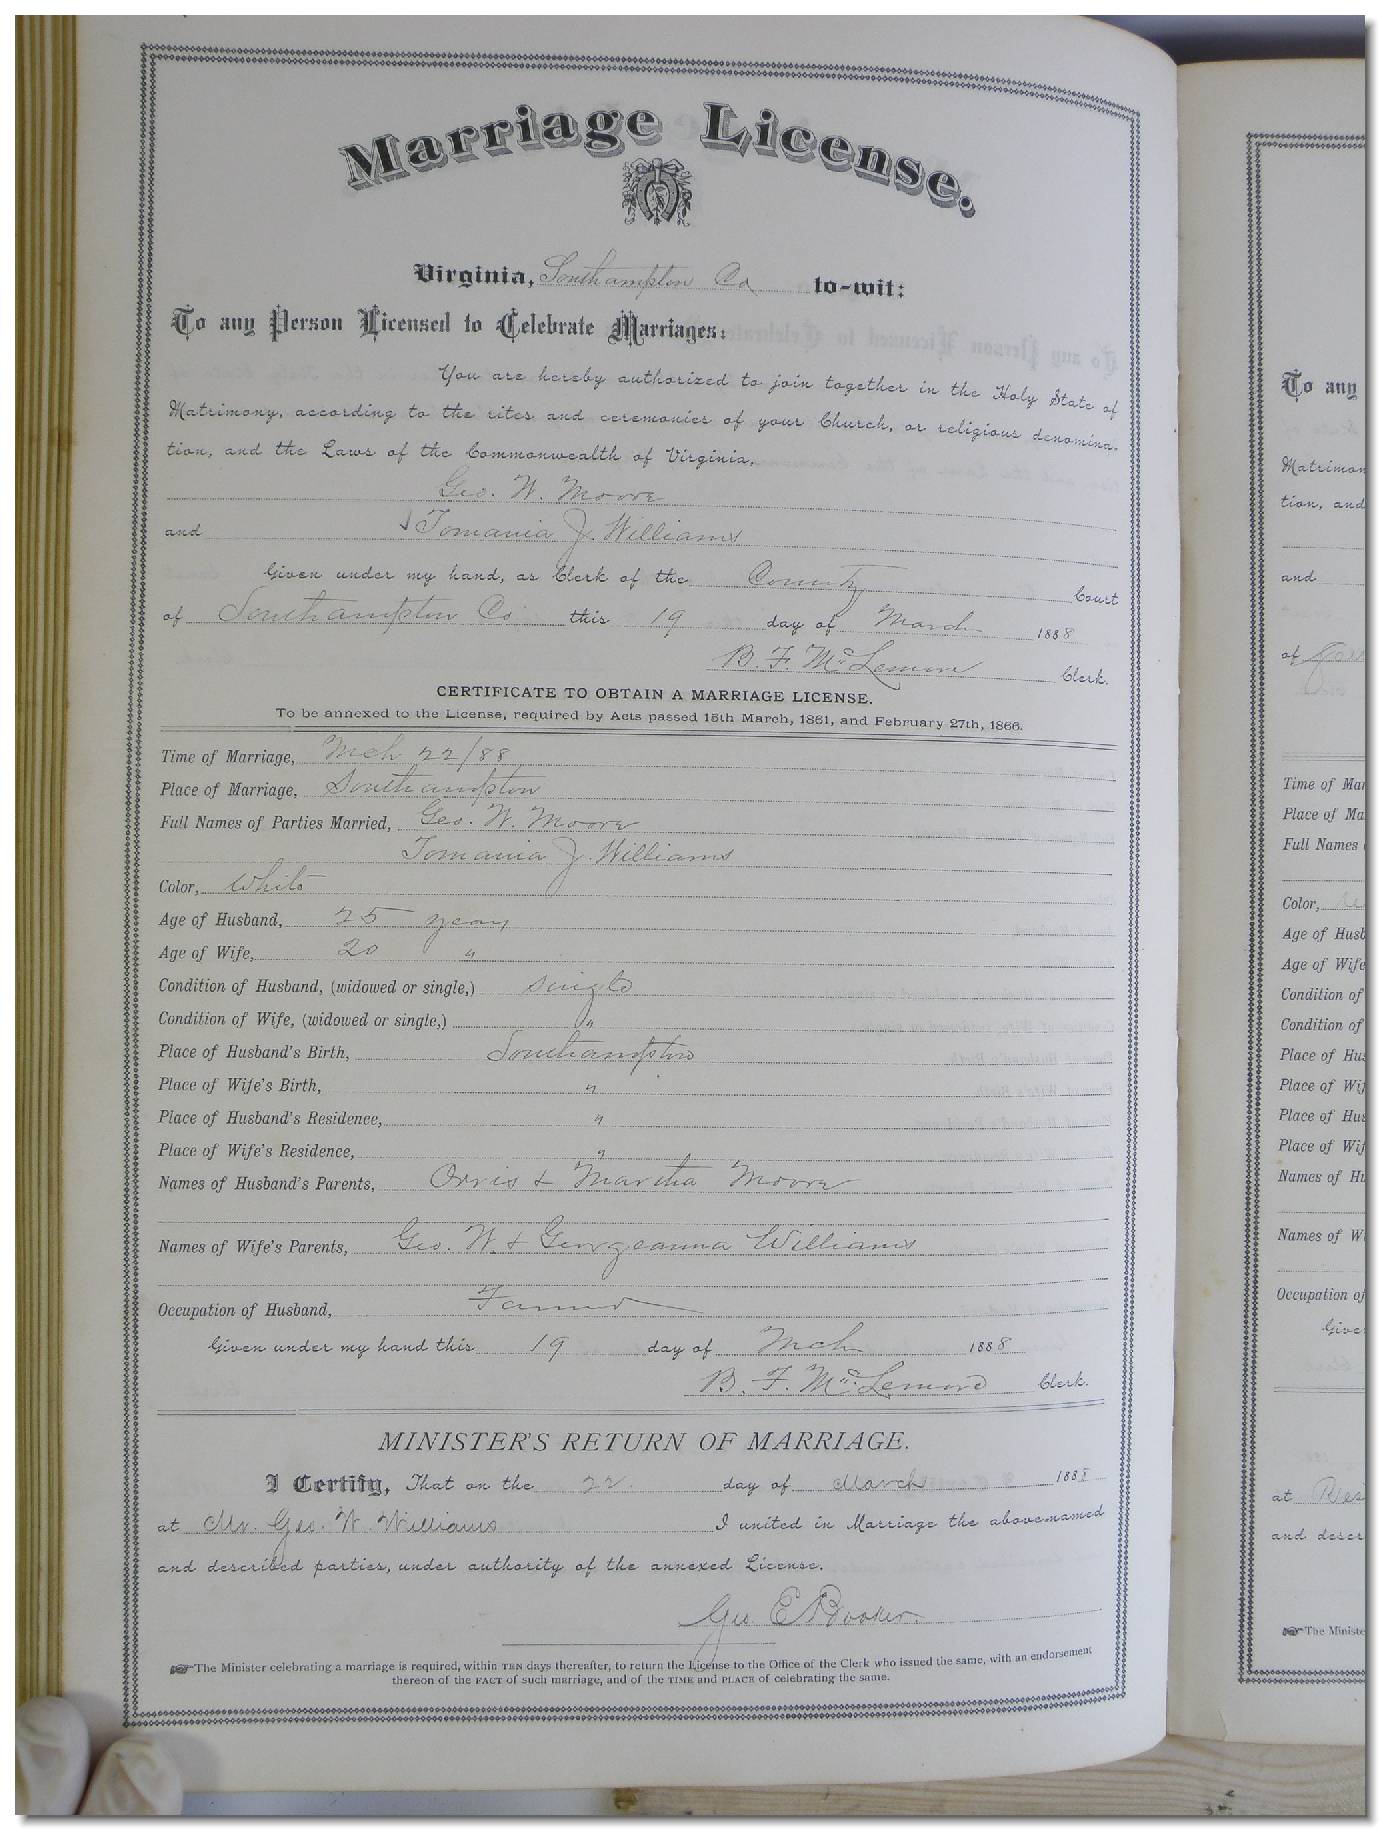 Marriage License.
Virginia, Southampton Co to-wit:
To any Person Licensed to Celebrate Marriages:
You are hereby authorized to join together in the Holy State of
Matrimony, according to the rites and ceremonies of your Church, or religious denomina-
tion, and the Laws of the Commonwealth of Virginia,
Geo. W. Moore
and Tomania J. Williams
Given under my hand, as Clerk of the County Court
of Southampton Co this 19 day of March 1888
B. F. McLemore Clerk.
CERTIFICATE TO OBTAIN A MARRIAGE LICENSE.
To be annexed to the License, required by Acts passed 15th March, 1861, and February 27th, 1866.
Time of Marriage, Mch 22/88
Place of Marriage, Southampton
Full Names of Parties Married, Geo. W. Moore
Tomania J. Williams
Color, White
Age of Husband, 25 years
Age of Wife, 20 "
Condition of Husband, (widowed or single,) single
Condition of Wife, (widowed or single,) "
Place of Husband's Birth, Southampton
Place of Wife's Birth, "
Place of Husband's Residence, "
Place of Wife's Residence, "
Names of Husband's Parents, Orris & Martha Moore
Names of Wife's Parents, Geo. W. & Georgeanna Williams
Occupation of Husband, Farmer
Given under my hand this 19 day of Mch 1888
B. F. McLemore Clerk.
MINISTER'S RETURN OF MARRIAGE.
I Certify, That on the 22 day of March 1888
at Mr. Geo. W. Williams I united in Marriage the above-named
and described parties, under authority of the annexed License.
Geo. E Booker
The Minister celebrating a marriage is required, within TEN days thereafter, to return the License to the Office of the Clerk who issued the same, with an endorsement
thereon of the FACT of such marriage, and of the TIME and PLACE of celebrating the same.
To any
Matrimon
tion, and
and
of
Time of Mar
Place of Ma
Full Names
Color,
Age of Husb
Age of Wife
Condition of
Condition of
Place of Hus
Place of Wif
Place of Hus
Place of Wif
Names of Hu
Names of W
Occupation of
Give
at Res
and descr
The Ministe